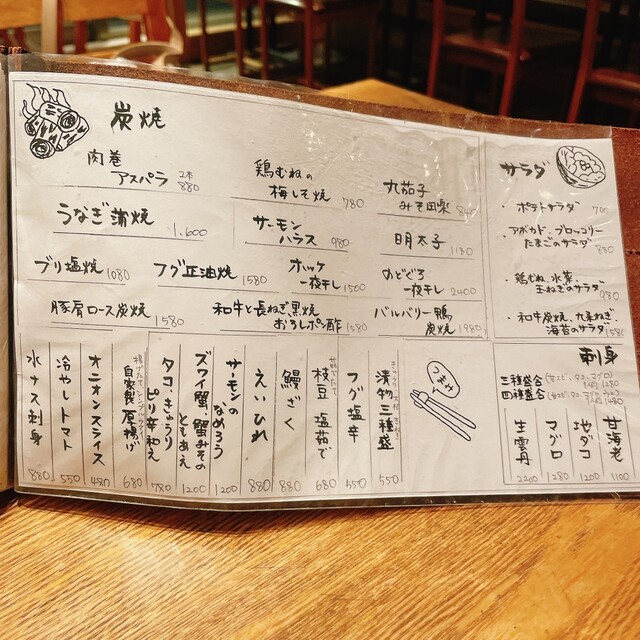 炭焼
肉巻
アスパラ 2本 880
鶏むねの
梅しそ焼 780
丸茄子
みそ田楽
うなぎ蒲焼 1,600
サーモン
ハラス 980
明太子 1180
ブリ塩焼 1080
フグ正油焼 1580
ホッケ
一夜干し 1500
のどぐろ
一夜干し 2400
豚肩ロース炭焼 1580
和牛と長ねぎ黒焼
おろしポン酢 1580
バルバリー鴨
炭焼 1980
サラダ
・ポテトサラダ 700
・アボカド、ブロッコリー
たまごのサラダ 880
・鶏むね、水菜、
玉ねぎのサラダ 980
・和牛炭焼、九条ねぎ、
海苔のサラダ 1580
刺身
三種盛合 1280
四種盛合 1480
甘海老 1100
地ダコ 1200
マグロ 1280
生雲丹 2200
つまみ
漬物三種盛 550
フグ塩辛 550
枝豆 塩茹で 680
鰻ざく 880
えいひれ 880
サーモンの
なめろう 1200
ズワイ蟹、蟹みその
ともあえ 1200
タコときゅうり
ピリ辛和え 780
自家製厚揚げ 680
オニオンスライス 480
冷やしトマト 550
水ナス刺身 880